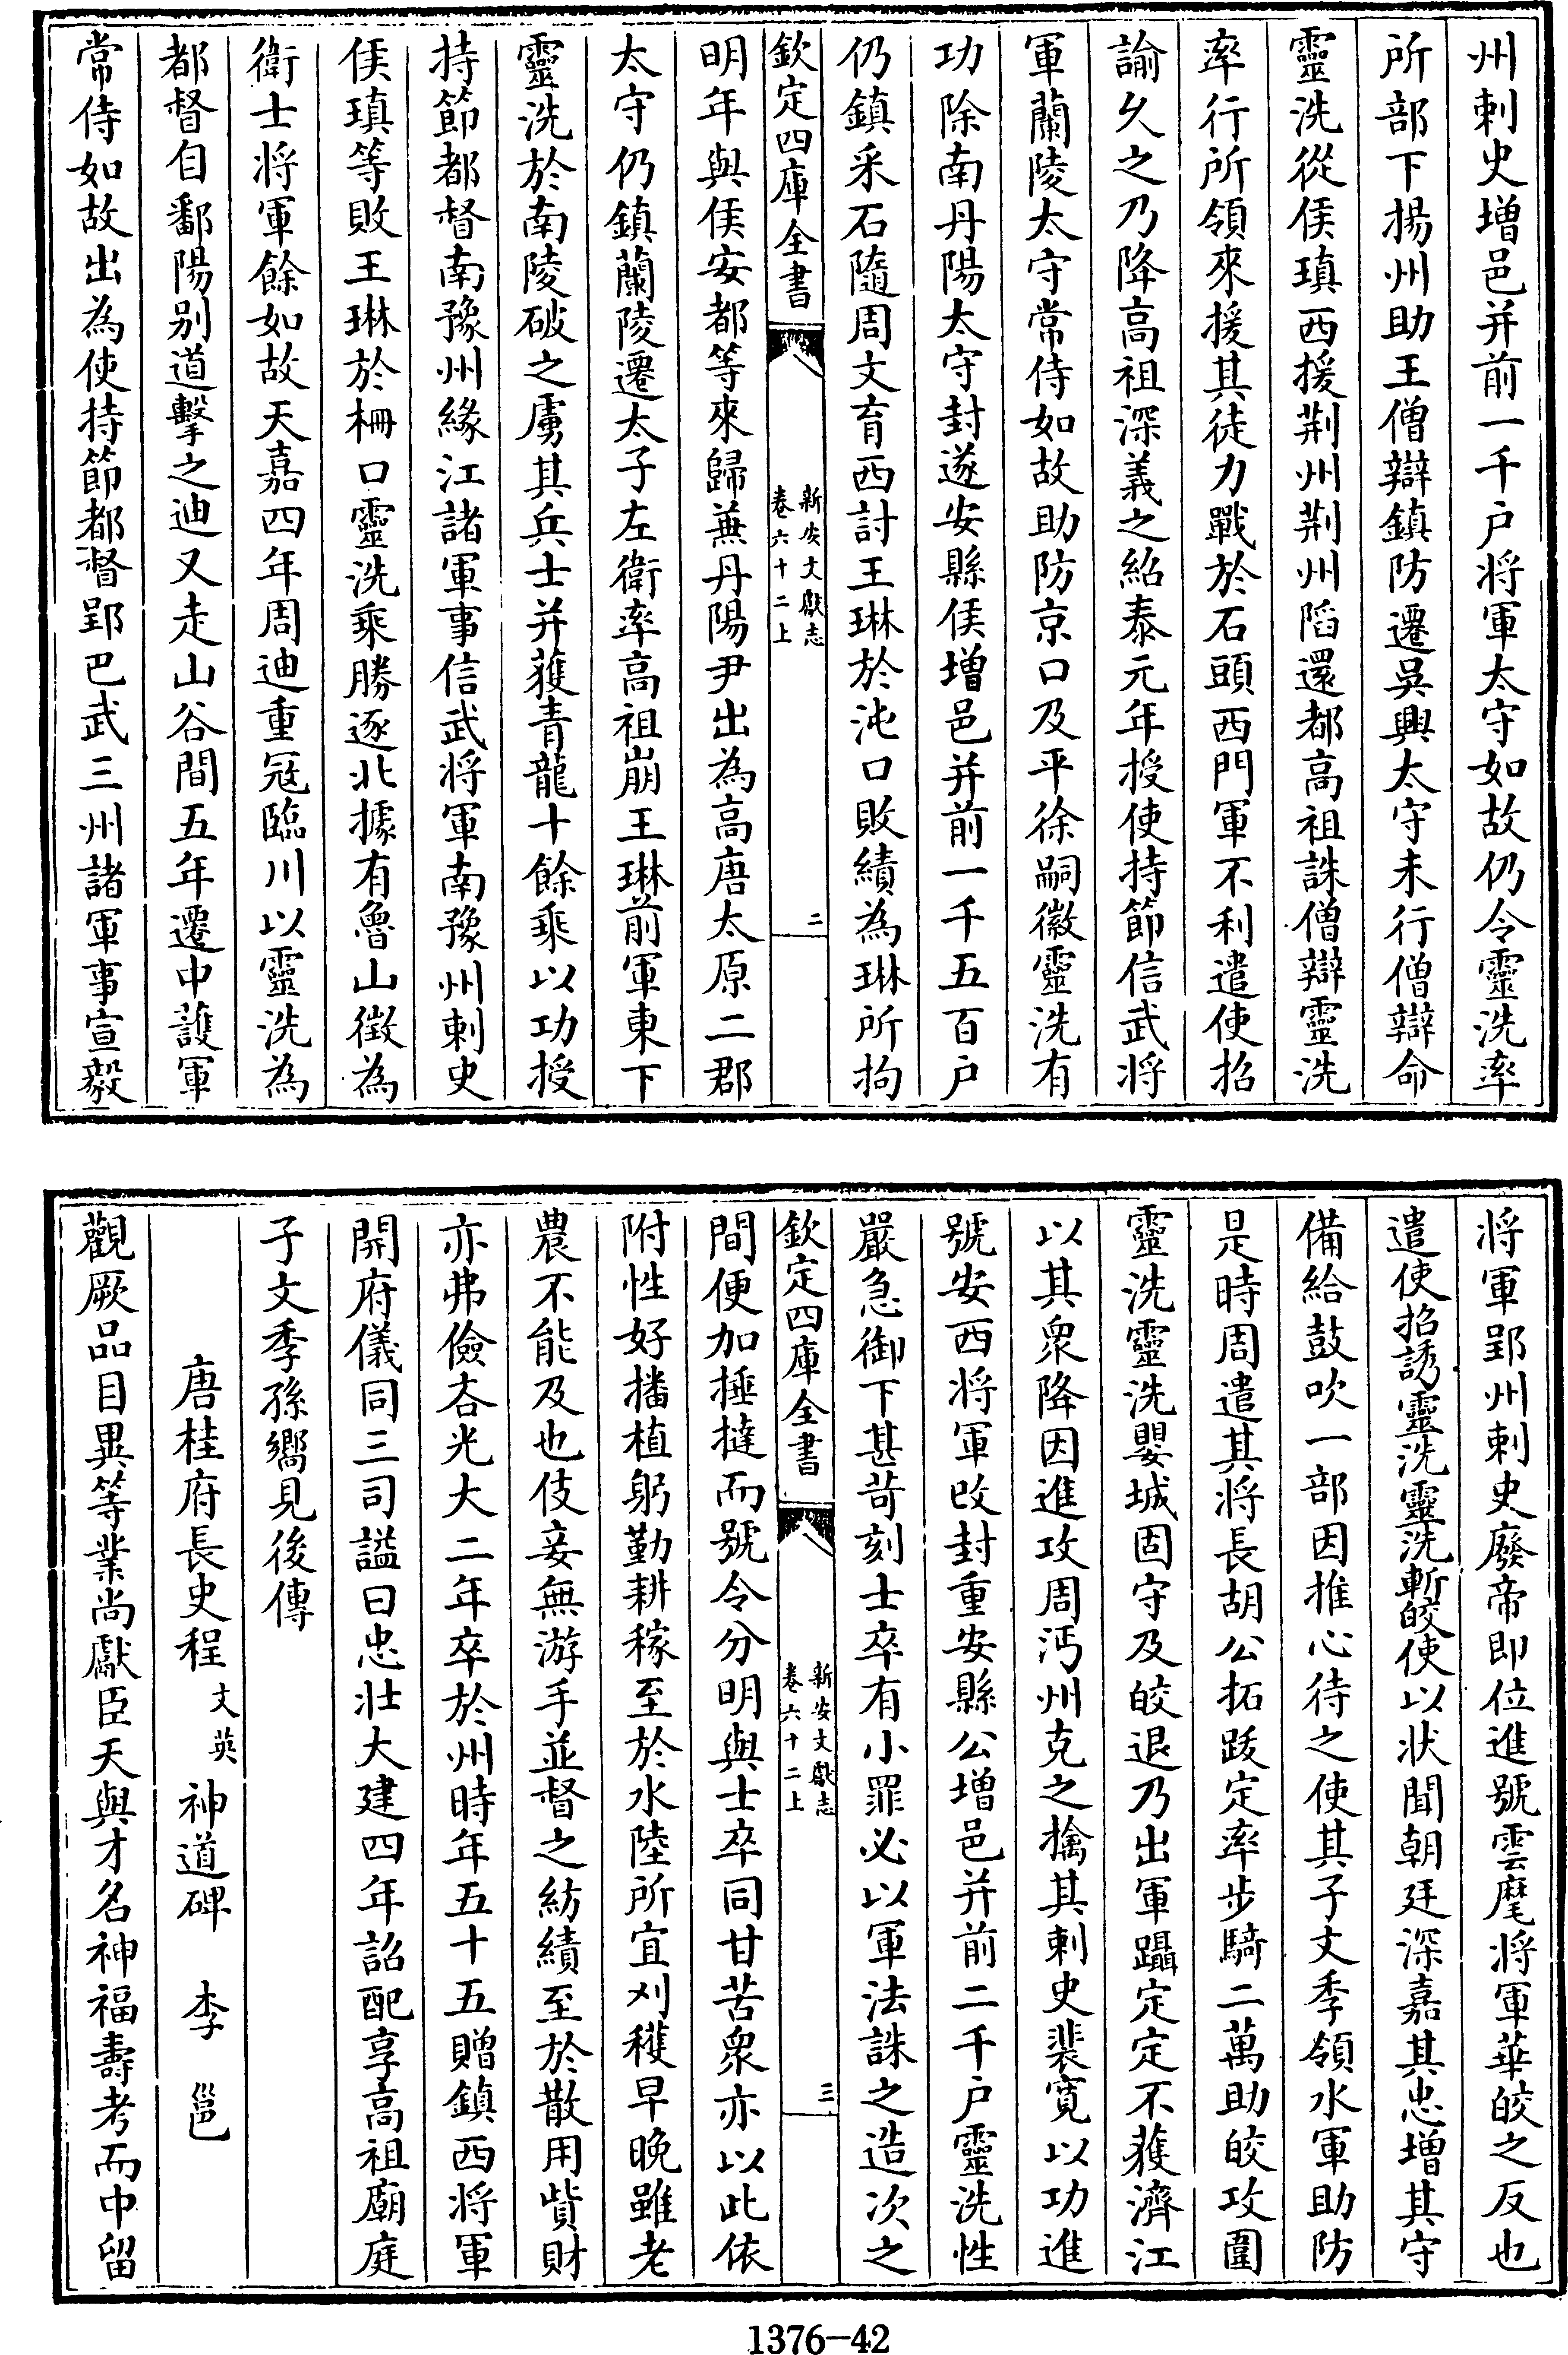 州刺史增邑并前一千户将軍太守如故仍令靈洗率
所部下揚州助王僧辯鎮防遷吳興太守未行僧辯命
靈洗從侯瑱西援荆州荆州䧟還都高祖誅僧辯靈洗
率行所領來援其徒力戰於石頭西門軍不利遣使招
諭乆之乃降高祖深義之紹泰元年授使持節信武将
軍蘭陵太守常侍如故助防京口及平徐嗣徽靈洗有
功除南丹陽太守封遂安縣侯增邑并前一千五百户
仍鎮采石隨周文育西討王琳於沌口敗績為琳所拘
欽定四庫全書
新安文獻志
卷六十二上
二
明年與侯安都等來歸兼丹陽尹出為高唐太原二郡
太守仍鎮蘭陵遷太子左衛率高祖崩王琳前軍東下
靈洗於南陵破之虜其兵士并獲青龍十餘乘以功授
持節都督南豫州緣江諸軍事信武将軍南豫州刺史
侯瑱等敗王琳於柵口靈洗乘勝逐北據有魯山徴為
衛士将軍餘如故天嘉四年周迪重冦臨川以靈洗為
都督自鄱陽别道擊之迪又走山谷間五年遷中䕶軍
常侍如故出為使持節都督郢巴武三州諸軍事宣毅
将軍郢州刺史廢帝即位進號雲麾将軍華皎之反也
遣使招誘靈洗靈洗斬皎使以状聞朝廷深嘉其忠增其守
備給鼓吹一部因推心待之使其子文季領水軍助防
是時周遣其将長胡公拓跋定率步騎二萬助皎攻圍
靈洗靈洗嬰城固守及皎退乃出軍躡定定不獲濟江
以其衆降因進攻周沔州克之擒其刺史裴寛以功進
號安西将軍改封重安縣公增邑并前二千户靈洗性
嚴急御下甚苛刻士卒有小罪必以軍法誅之造次之
欽定四庫全書
新安文獻志
卷六十二上
三
間便加捶撻而號令分明與士卒同甘苦衆亦以此依
附性好播植躬勤耕稼至於水陸所宜刈穫早晚雖老
農不能及也伎妾無游手並督之紡績至於散用貲財
亦弗儉吝光大二年卒於州時年五十五贈鎮西将軍
開府儀同三司謚曰忠壮大建四年詔配享高祖廟庭
子文季孫嚮見後傳
唐桂府長史程文英神道碑　李邕
觀厥品目異等業尚獻臣天與才名神福壽考而中留
1376-42